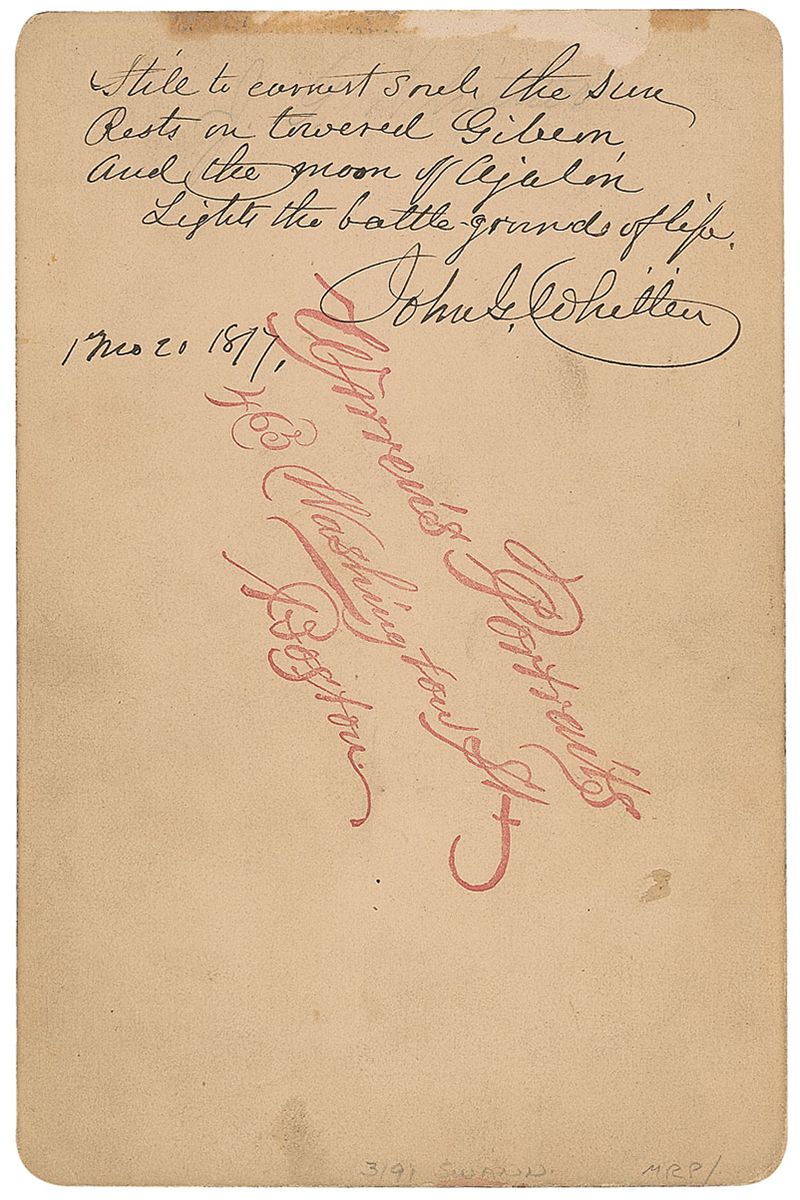 Still to earnest souls the sun
Rests on towered Gibeon,
And the moon of Ajalon
Lights the battle-grounds of life.
John G. Whittier
1st Mo 20 1877.
Warren's Portraits
463 Washington St
Boston.
3191 SWANN.
MRP/